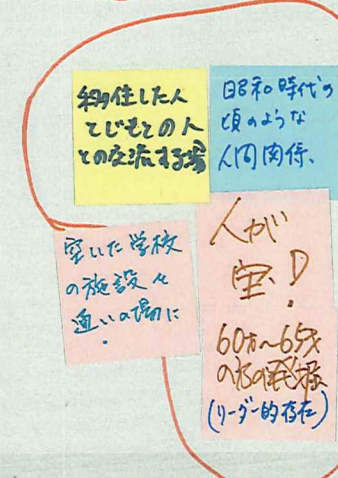 移住した人
とじもとの人
との交流する場
昭和時代の
頃のような
人間関係、
空いた学校
の施設を
通いの場に
人が
宝!
60才〜65才
の方の発掘
(リーダー的存在)